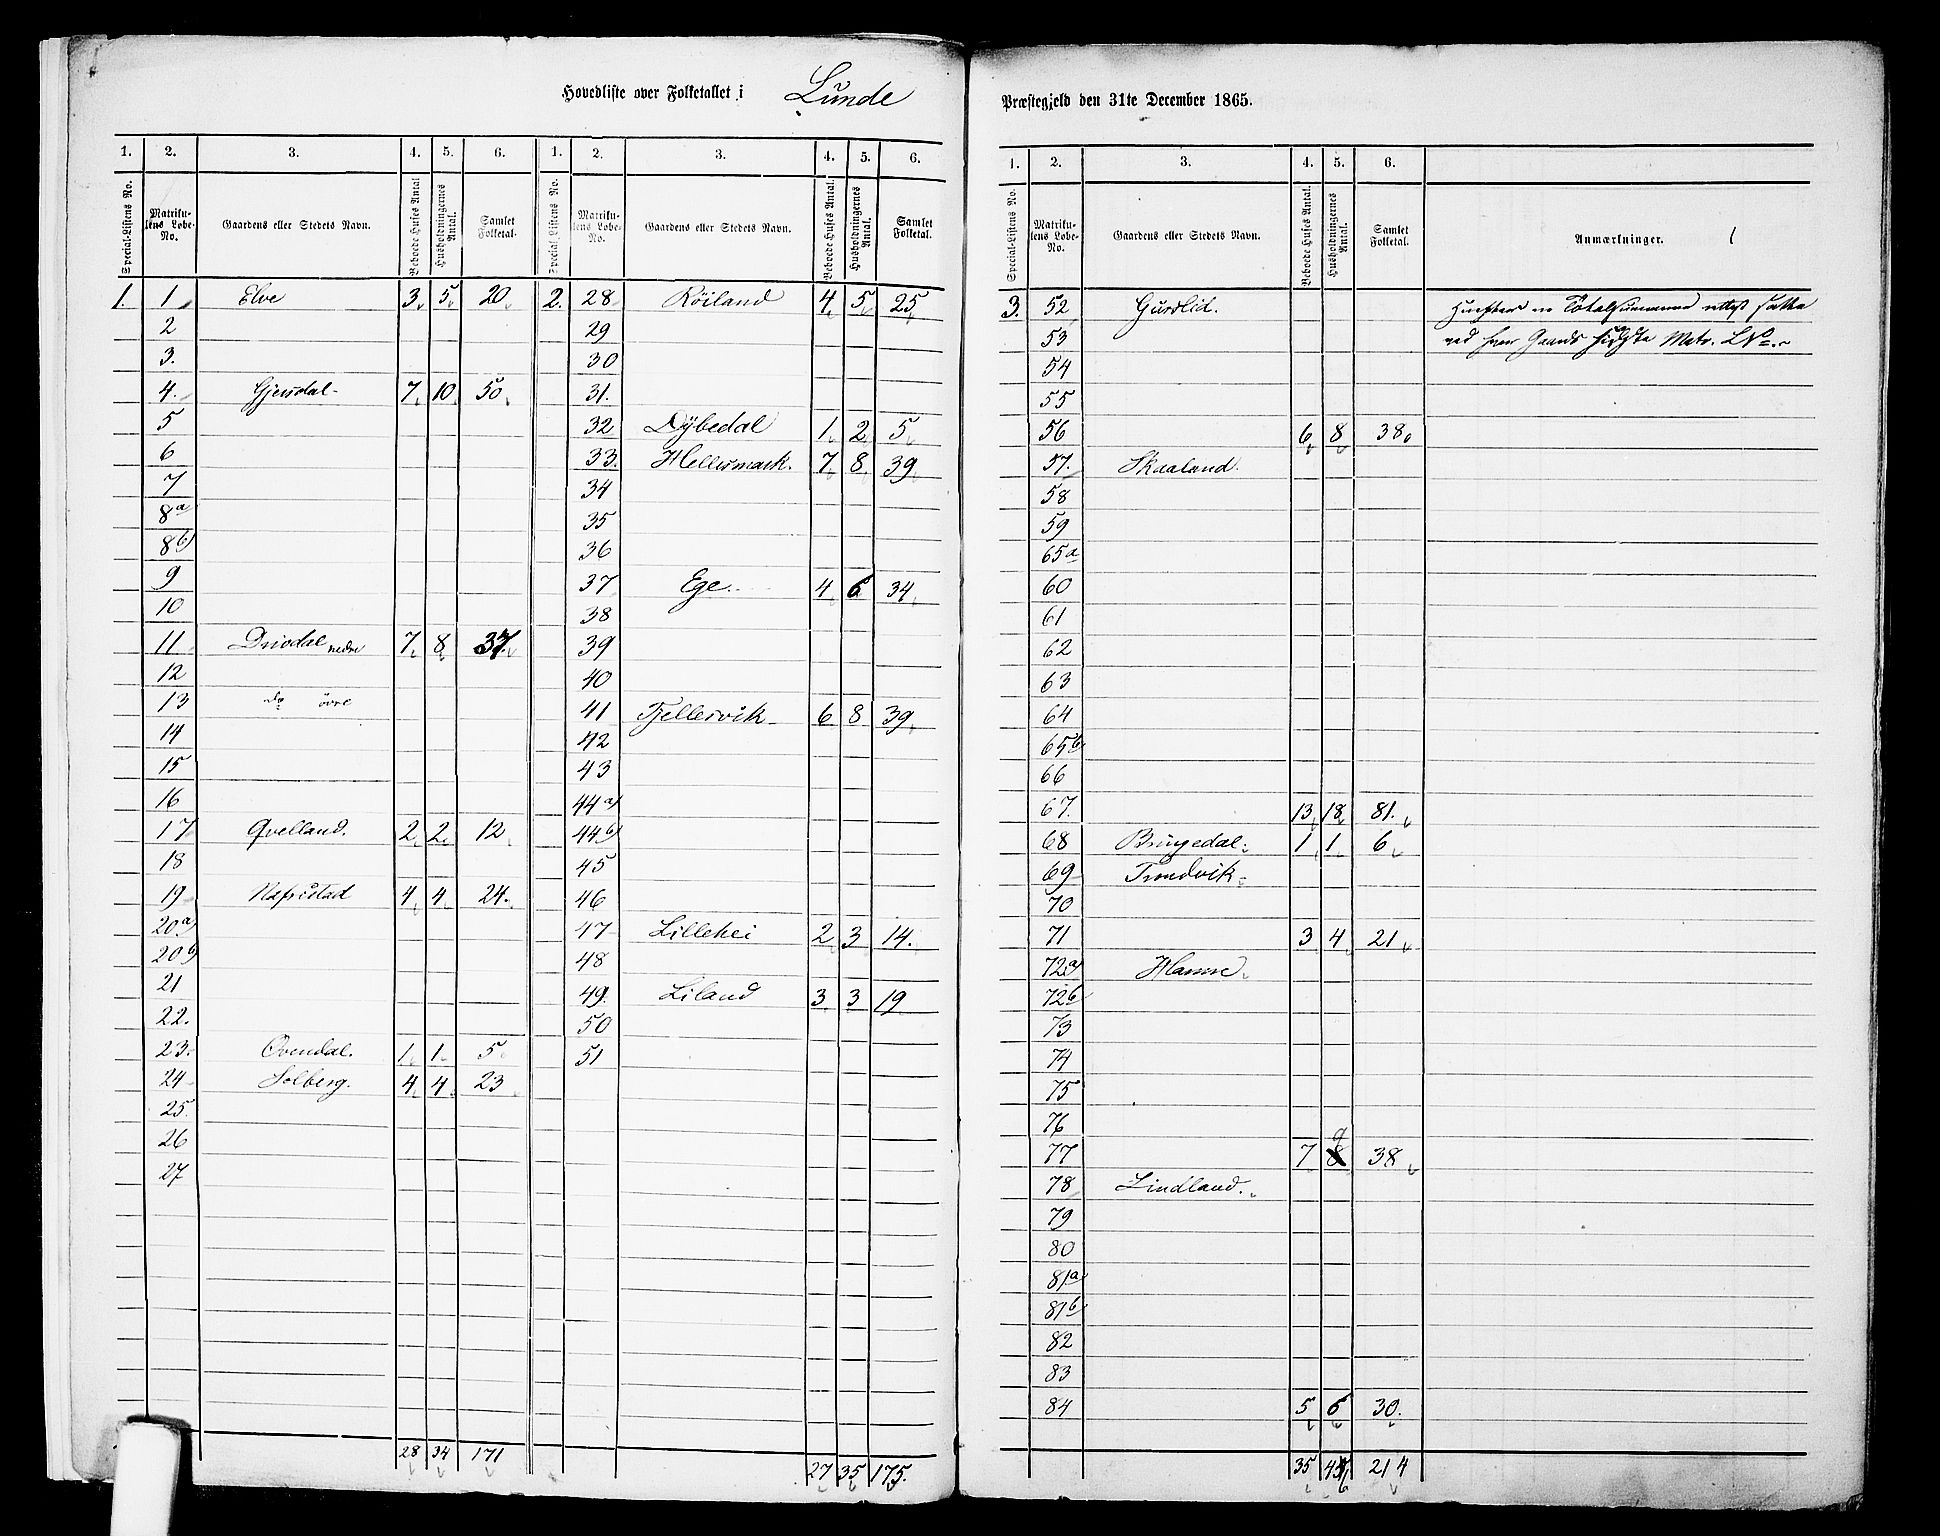 Hovedliste over Folketallet i Lunde
1. 2. 3. 4. 5. 6. 1. 2. 3. 4. 5. 6.
Special-Listens No. Matrikulens Løbe-No. Gaardens eller Stedets Navn. Beboede Huses Antal Husholdningernes Antal. Samlet Folketal. Special-Listens No. Matrikulens Løbe-No. Gaardens eller Stedets Navn. Beboede Huses Antal. Husholdningernes Antal. Samlet Folketal.
1. 1 Elve 3 5 20 2. 28 Röiland 4 5 25
2 29
3. 30
4. Gjersdal 7 10 50 31.
5 32 Dÿbedal 1 2 5
6 33. Hellersmark. 7 8 39
7 34
8a 35
8b) 36
9 37 Ege. 4 6 34
10 38
11 Drivdal nedre 7 8 37. 39
12 40
13 do øvre 41 Fjellersvik 6 8 39
14 42
15 43
16 44a)
17 Qvelland. 2 2 12 44b)
18 45
19 Refsstad 4 4 24. 46
20.a) 47 Lillehei 2 3 14.
20b) 48
21 49. Liland 3 3 19
22. 50
23. Ovendal. 1 1 5 51
24 Solberg. 4 4 23
25.
26
27
28 34 171 27 35 175.
Præstegjeld den 31te December 1865.
1. 2. 3. 4. 5. 6.
Special-Listens No. Matrikulens Løbe-No. Gaardens eller Stedets Navn. Beboede Huses Antal. Husholdningernes Antal. Samlet Folketal. Anmærkninger.
3. 52 Gurslid. Totalsummerne satte
53 ved hver Gaards sidste Matr. LNo.
54
55
56 6 8 38
57. Skaaland.
58
59
65a
60
61
62
63
64
65b
66
67. 13 18 81.
68 Bringedal 1 1 6
69 Trondvik
70
71 3 4 21
72a) Hamre
72b
73
74
75
76
77 7 8 9 38
78 Lindland.
79
80
81a
81b
82
83
84 5 6 30.
35 46 214